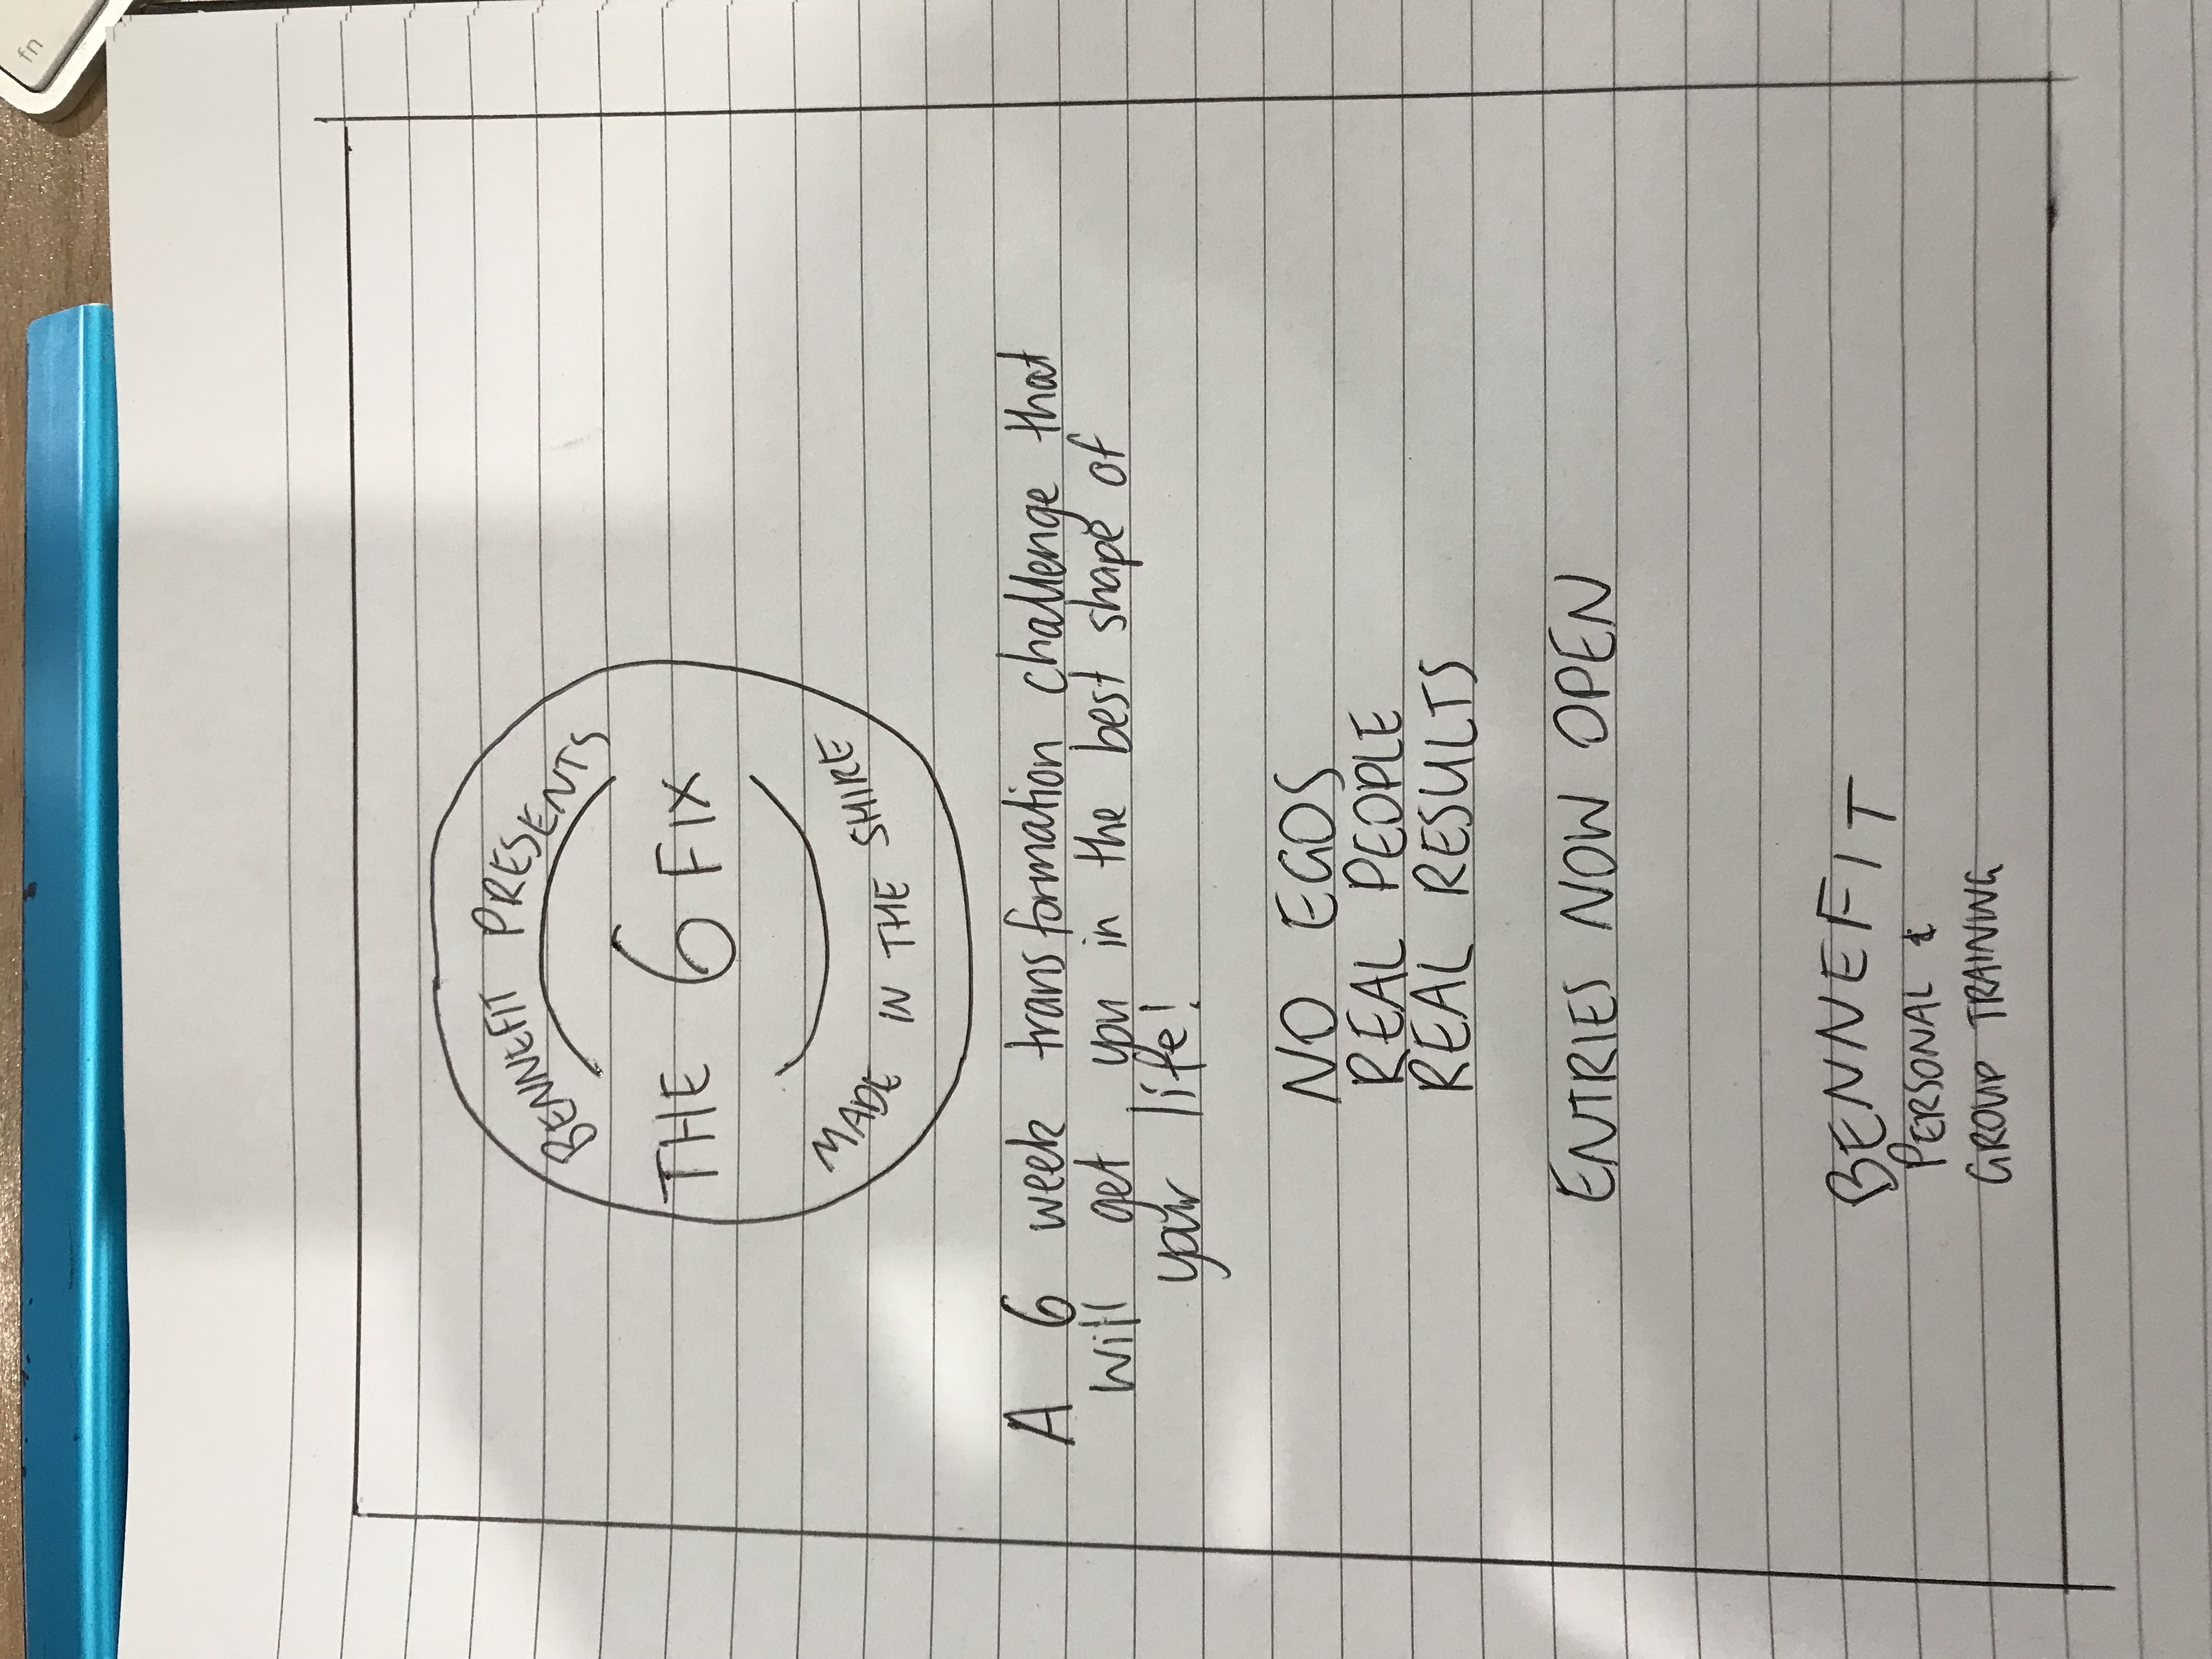 fn
BENNEFIT PRESENTS
THE 6 FIX
MADE IN THE SHIRE
A 6 week transformation challenge that
will get you in the best shape of
your life!
NO EGOS
REAL PEOPLE
REAL RESULTS
ENTRIES NOW OPEN
BENNEFIT
PERSONAL &
GROUP TRAINING